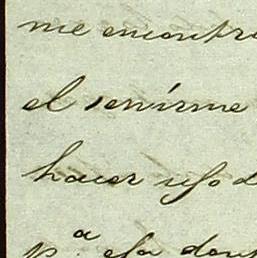 me encontr
el venirme
hacer uso d
p.ª esa don